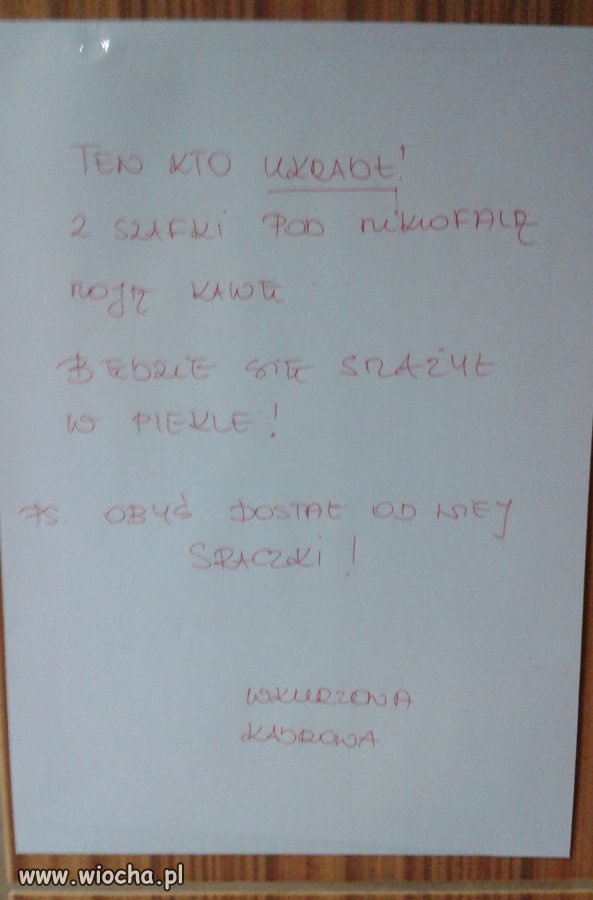 TEN KTO UKRADŁ!
Z SZAFKI POD MIKROFALĄ
MOJĄ KAWĘ
BĘDZIE SIĘ SMAŻYŁ
W PIEKLE!
PS. OBYŚ DOSTAŁ OD NIEJ
SRACZKI!
WKURZONA
KADROWA
www.wiocha.pl